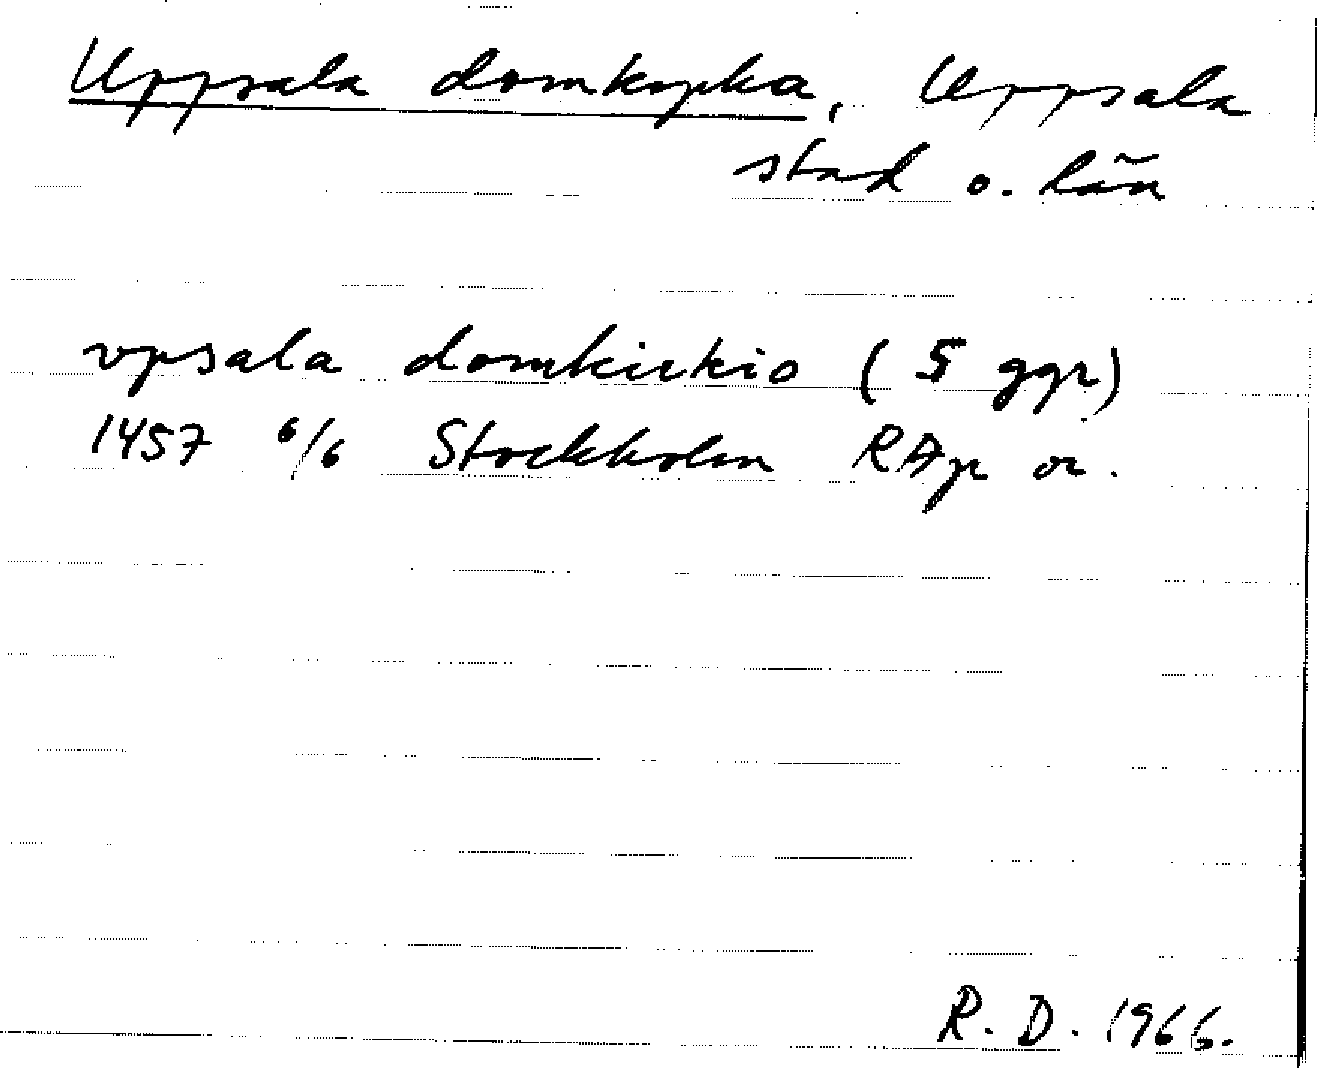 Uppsala domkyrka, Uppsala
stad o. län
vpsala domkirkio (5 ggr)
1457 6/6 Stockholm RAp or.
R. D. 1966.